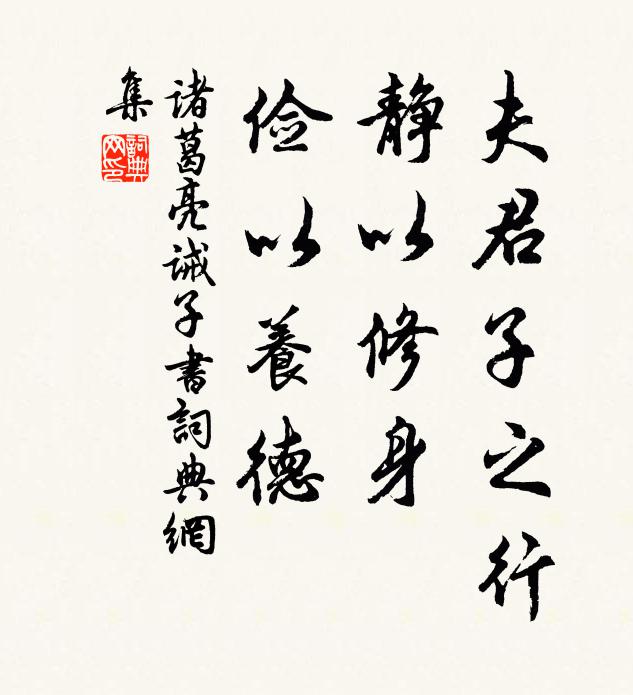 夫君子之行
静以修身
儉以養德
諸葛亮誡子書詞典網
集
詞典
网印